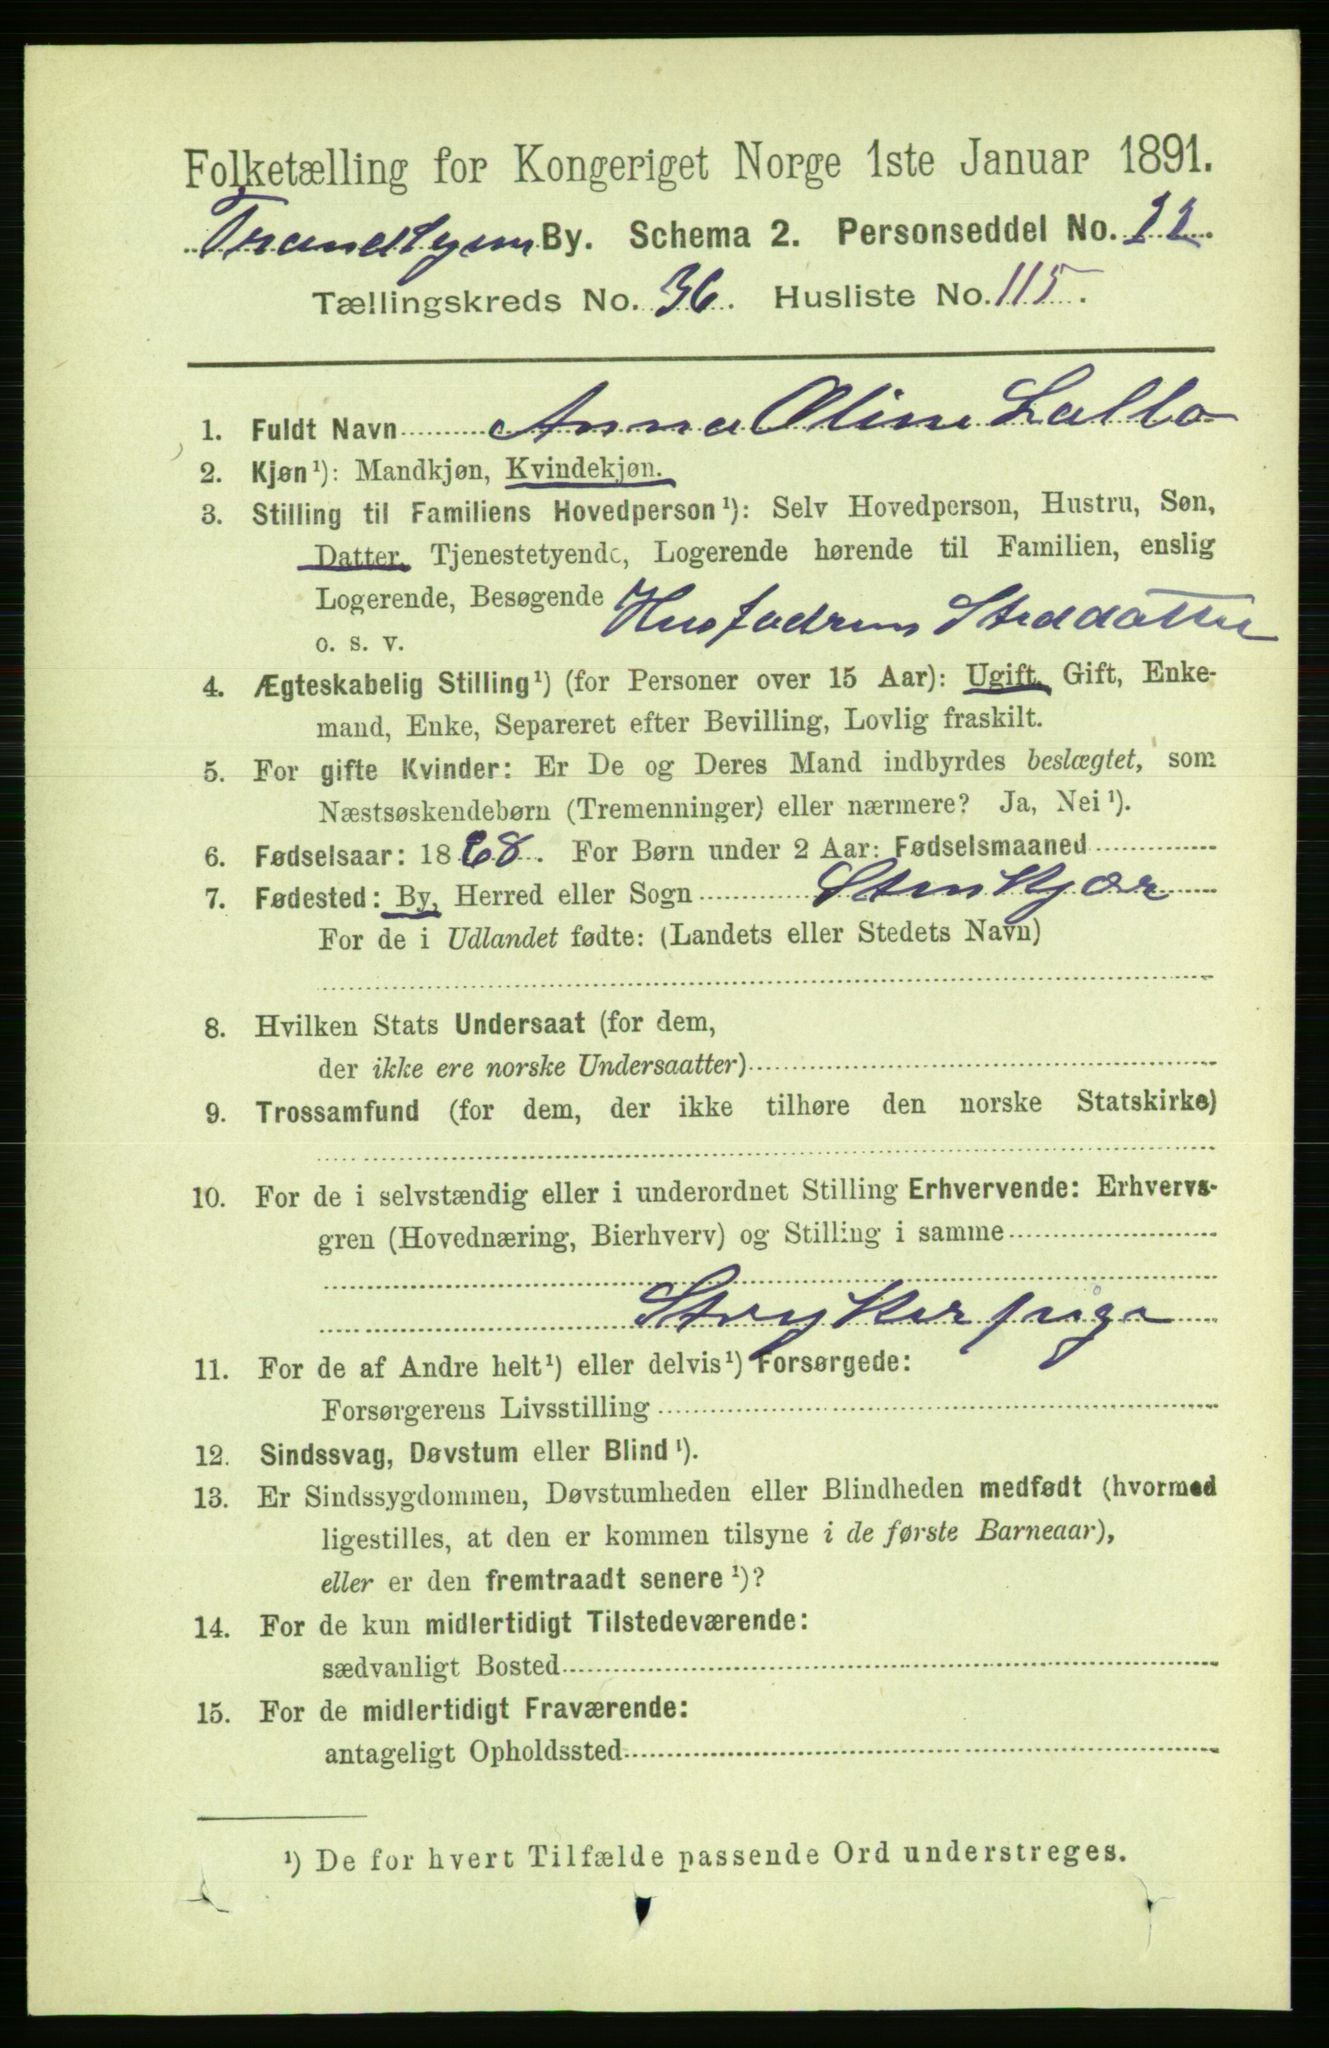 Folketælling for Kongeriget Norge 1ste Januar 1891.
Trondhjem By. Schema 2. Personseddel No. 22.
Tællingskreds No. 36. Husliste No. 115.
1. Fuldt Navn Anna Oline
2. Kjøn¹): Mandkjøn, Kvindekjøn.
3. Stilling til Familiens Hovedperson¹): Selv Hovedperson, Hustru, Søn,
Datter, Tjenestetyende, Logerende hørende til Familien, enslig
Logerende, Besøgende Husfadrens Steddatter
o. s. v.
4. Ægteskabelig Stilling¹) (for Personer over 15 Aar): Ugift, Gift, Enke-
mand, Enke, Separeret efter Bevilling, Lovlig fraskilt.
5. For gifte Kvinder: Er De og Deres Mand indbyrdes beslægtet, som
Næstsøskendebørn (Tremenninger) eller nærmere? Ja, Nei¹).
6. Fødselsaar: 1868. For Børn under 2 Aar: Fødselsmaaned
7. Fødested: By, Herred eller Sogn Stenkjær
For de i Udlandet fødte: (Landets eller Stedets Navn)
8. Hvilken Stats Undersaat (for dem,
der ikke ere norske Undersaatter)
9. Trossamfund (for dem, der ikke tilhøre den norske Statskirke)
10. For de i selvstændig eller i underordnet Stilling Erhvervende: Erhvervs-
gren (Hovednæring, Bierhverv) og Stilling i samme
Strykerpige
11. For de af Andre helt¹) eller delvis¹) Forsørgede:
Forsørgerens Livsstilling
12. Sindssvag, Døvstum eller Blind¹).
13. Er Sindssygdommen, Døvstumheden eller Blindheden medfødt (hvormed
ligestilles, at den er kommen tilsyne i de første Barneaar),
eller er den fremtraadt senere¹)?
14. For de kun midlertidigt Tilstedeværende:
sædvanligt Bosted
15. For de midlertidigt Fraværende:
antageligt Opholdssted
¹) De for hvert Tilfælde passende Ord understreges.